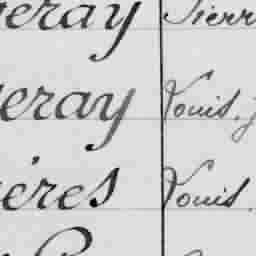 eray Pierr
eray Louis, J
ères Louis.